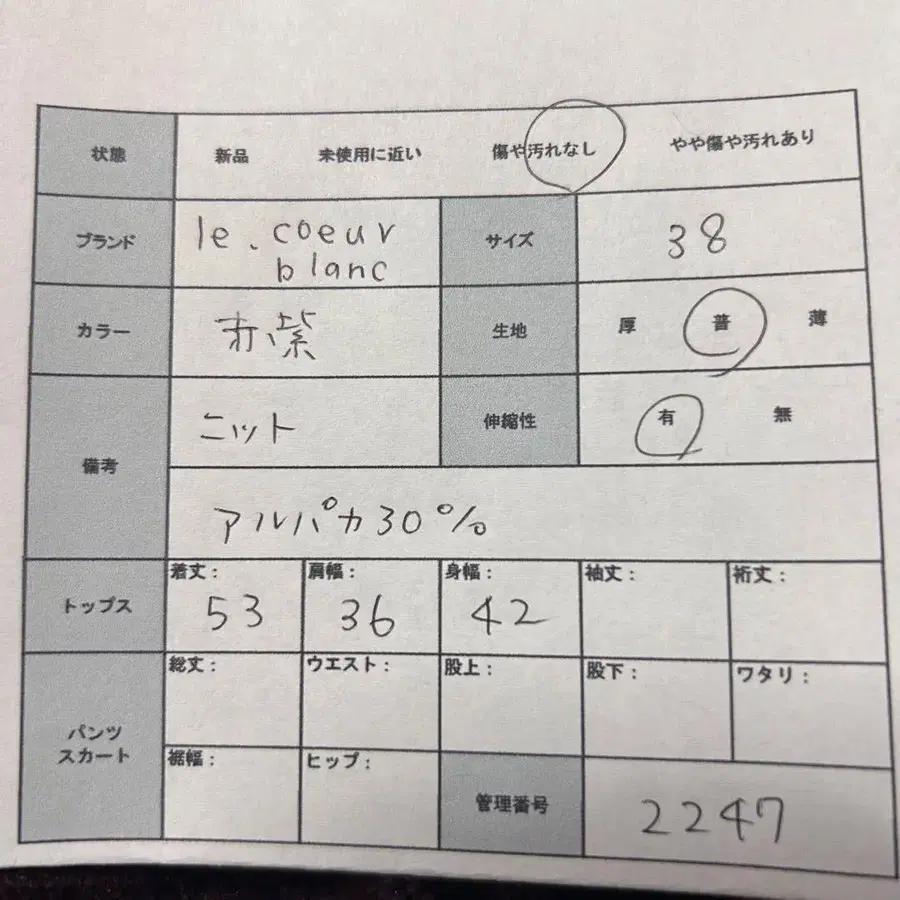 状態 新品 未使用に近い 傷や汚れなし やや傷や汚れあり
ブランド le.coeur blanc サイズ 38
カラー 赤紫 生地 厚 普 薄
備考 ニット 伸縮性 有 無
アルパカ30%
トップス 着丈: 53 肩幅: 36 身幅: 42 袖丈: 裄丈:
パンツ スカート 総丈: ウエスト: 股上: 股下: ワタリ:
裾幅: ヒップ: 管理番号 2247